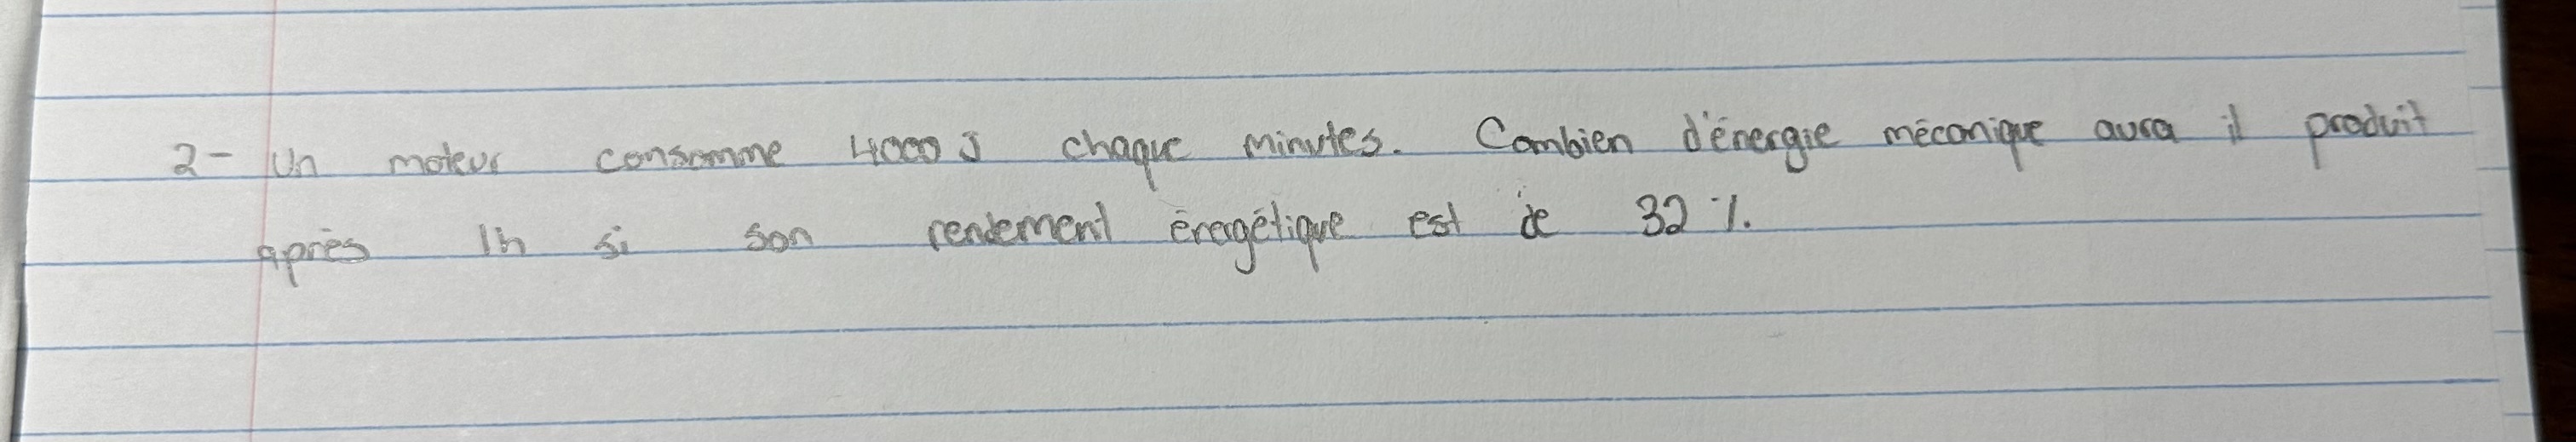 2- Un moteur consomme 4000 J chaque minutes. Combien d'énergie mécanique aura il produit
après 1h si son rendement énergétique est de 32 %.